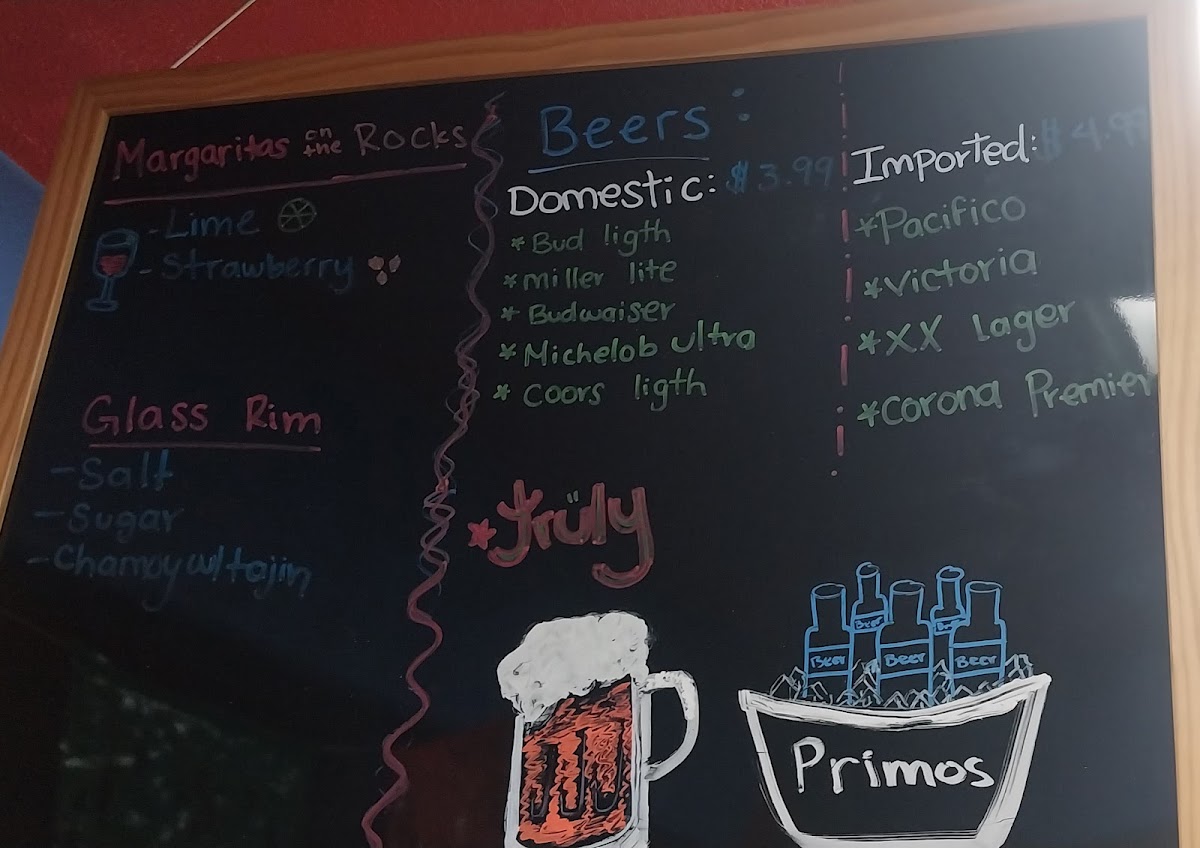 Margaritas on the Rocks
-Lime
-Strawberry
Glass Rim
-Salt
-Sugar
-Chamoy w/tajin
Beers:
Domestic: $3.99
*Bud ligth
*miller lite
*Budwaiser
*Michelob ultra
*Coors ligth
Imported: $4.99
*Pacifico
*Victoria
*XX lager
*Corona Premier
*Trüly
Beer
Beer
Beer
Beer
Beer
Primos